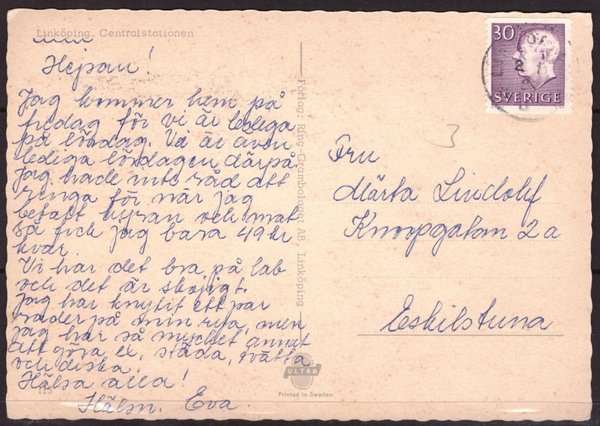 Linköping. Centralstationen
Hejsan!
Jag kommer hem på
fredag för vi är lediga
på lördag. Vi är även
lediga lördagen därpå.
Jag hade inte råd att
ringa för när jag
betalt hyran och mat
så fick jag bara 49 kr
kvar.
Vi har det bra på lab
och det är skojigt.
Jag har knytit ett par
rader på min rya, men
jag har så mycket annat
att göra ex, städa, tvätta
och diska.
Hälsa alla!
Hälsn. Eva.
113
Förlag: Ring-Grambolaget AB, Linköping
ULTRA
Printed in Sweden
30
SVERIGE
3
Fru
Märta Lindolf
Knoopgatan 2 a
Eskilstuna